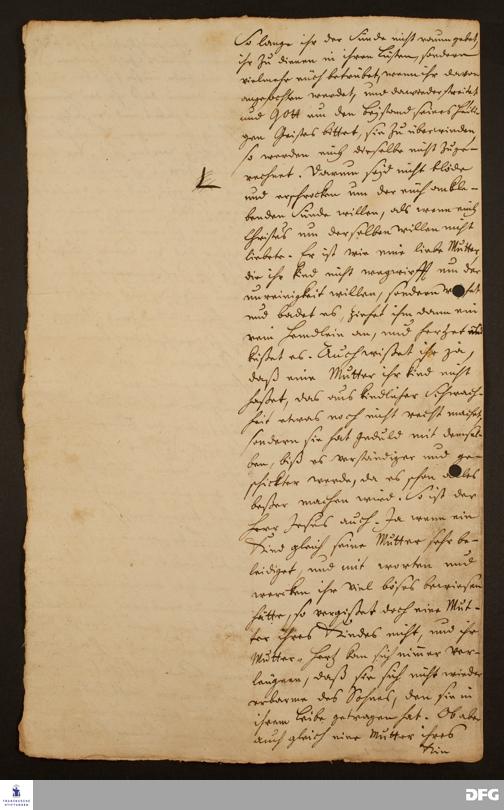 So lange ihr der Sünde nicht raum gebet,
ihr zu dienen in ihren Lüsten, sondern
vielmehr euch betrübet, wenn ihr davon
angefochten werdet, und dawieder streitet
und GOTT um den Beystand seines Heili-
gen Geistes bittet, sie zu überwinden
so werden euch dieselbe nicht zuge-
rechnet. Darum seyd nicht blöde
und erschrocken um der euch ankle-
benden Sünde willen, als wenn euch
Christus um derselben willen nicht
liebete. Er ist wie eine liebe Mutter,
die ihr Kind nicht wegwirfft um der
unreinigkeit willen, sondern
und badet es, ziehet ihm dann ein
rein Hemdlein an, und hertzet und
küßet es. Auch wißet ihr ja,
daß eine Mutter ihr Kind nicht
haßet, das aus kindlicher Schwach-
heit etwas noch nicht recht machet,
sondern sie hat geduld mit demsel-
ben, biß es verständiger und ge-
schickter werde, da es schon alles
beßer machen wird. So ist der
Herr Jesus auch. Ja wenn ein
Kind gleich seine Mutter sehr be-
leidiget, und mit worten und
wercken ihr viel böses bewiesen
hätte, so vergißet doch eine Mut-
ter ihres Kindes nicht, und ihr
Mutter-Hertz kan sich nimmer ver-
leugnen, daß sie sich nicht wieder
erbarme des Sohnes, den sie in
ihrem Leibe getragen hat. Ob aber
auch gleich eine Mutter ihres
Kin
FRANCKESCHE
STIFTUNGEN
DFG